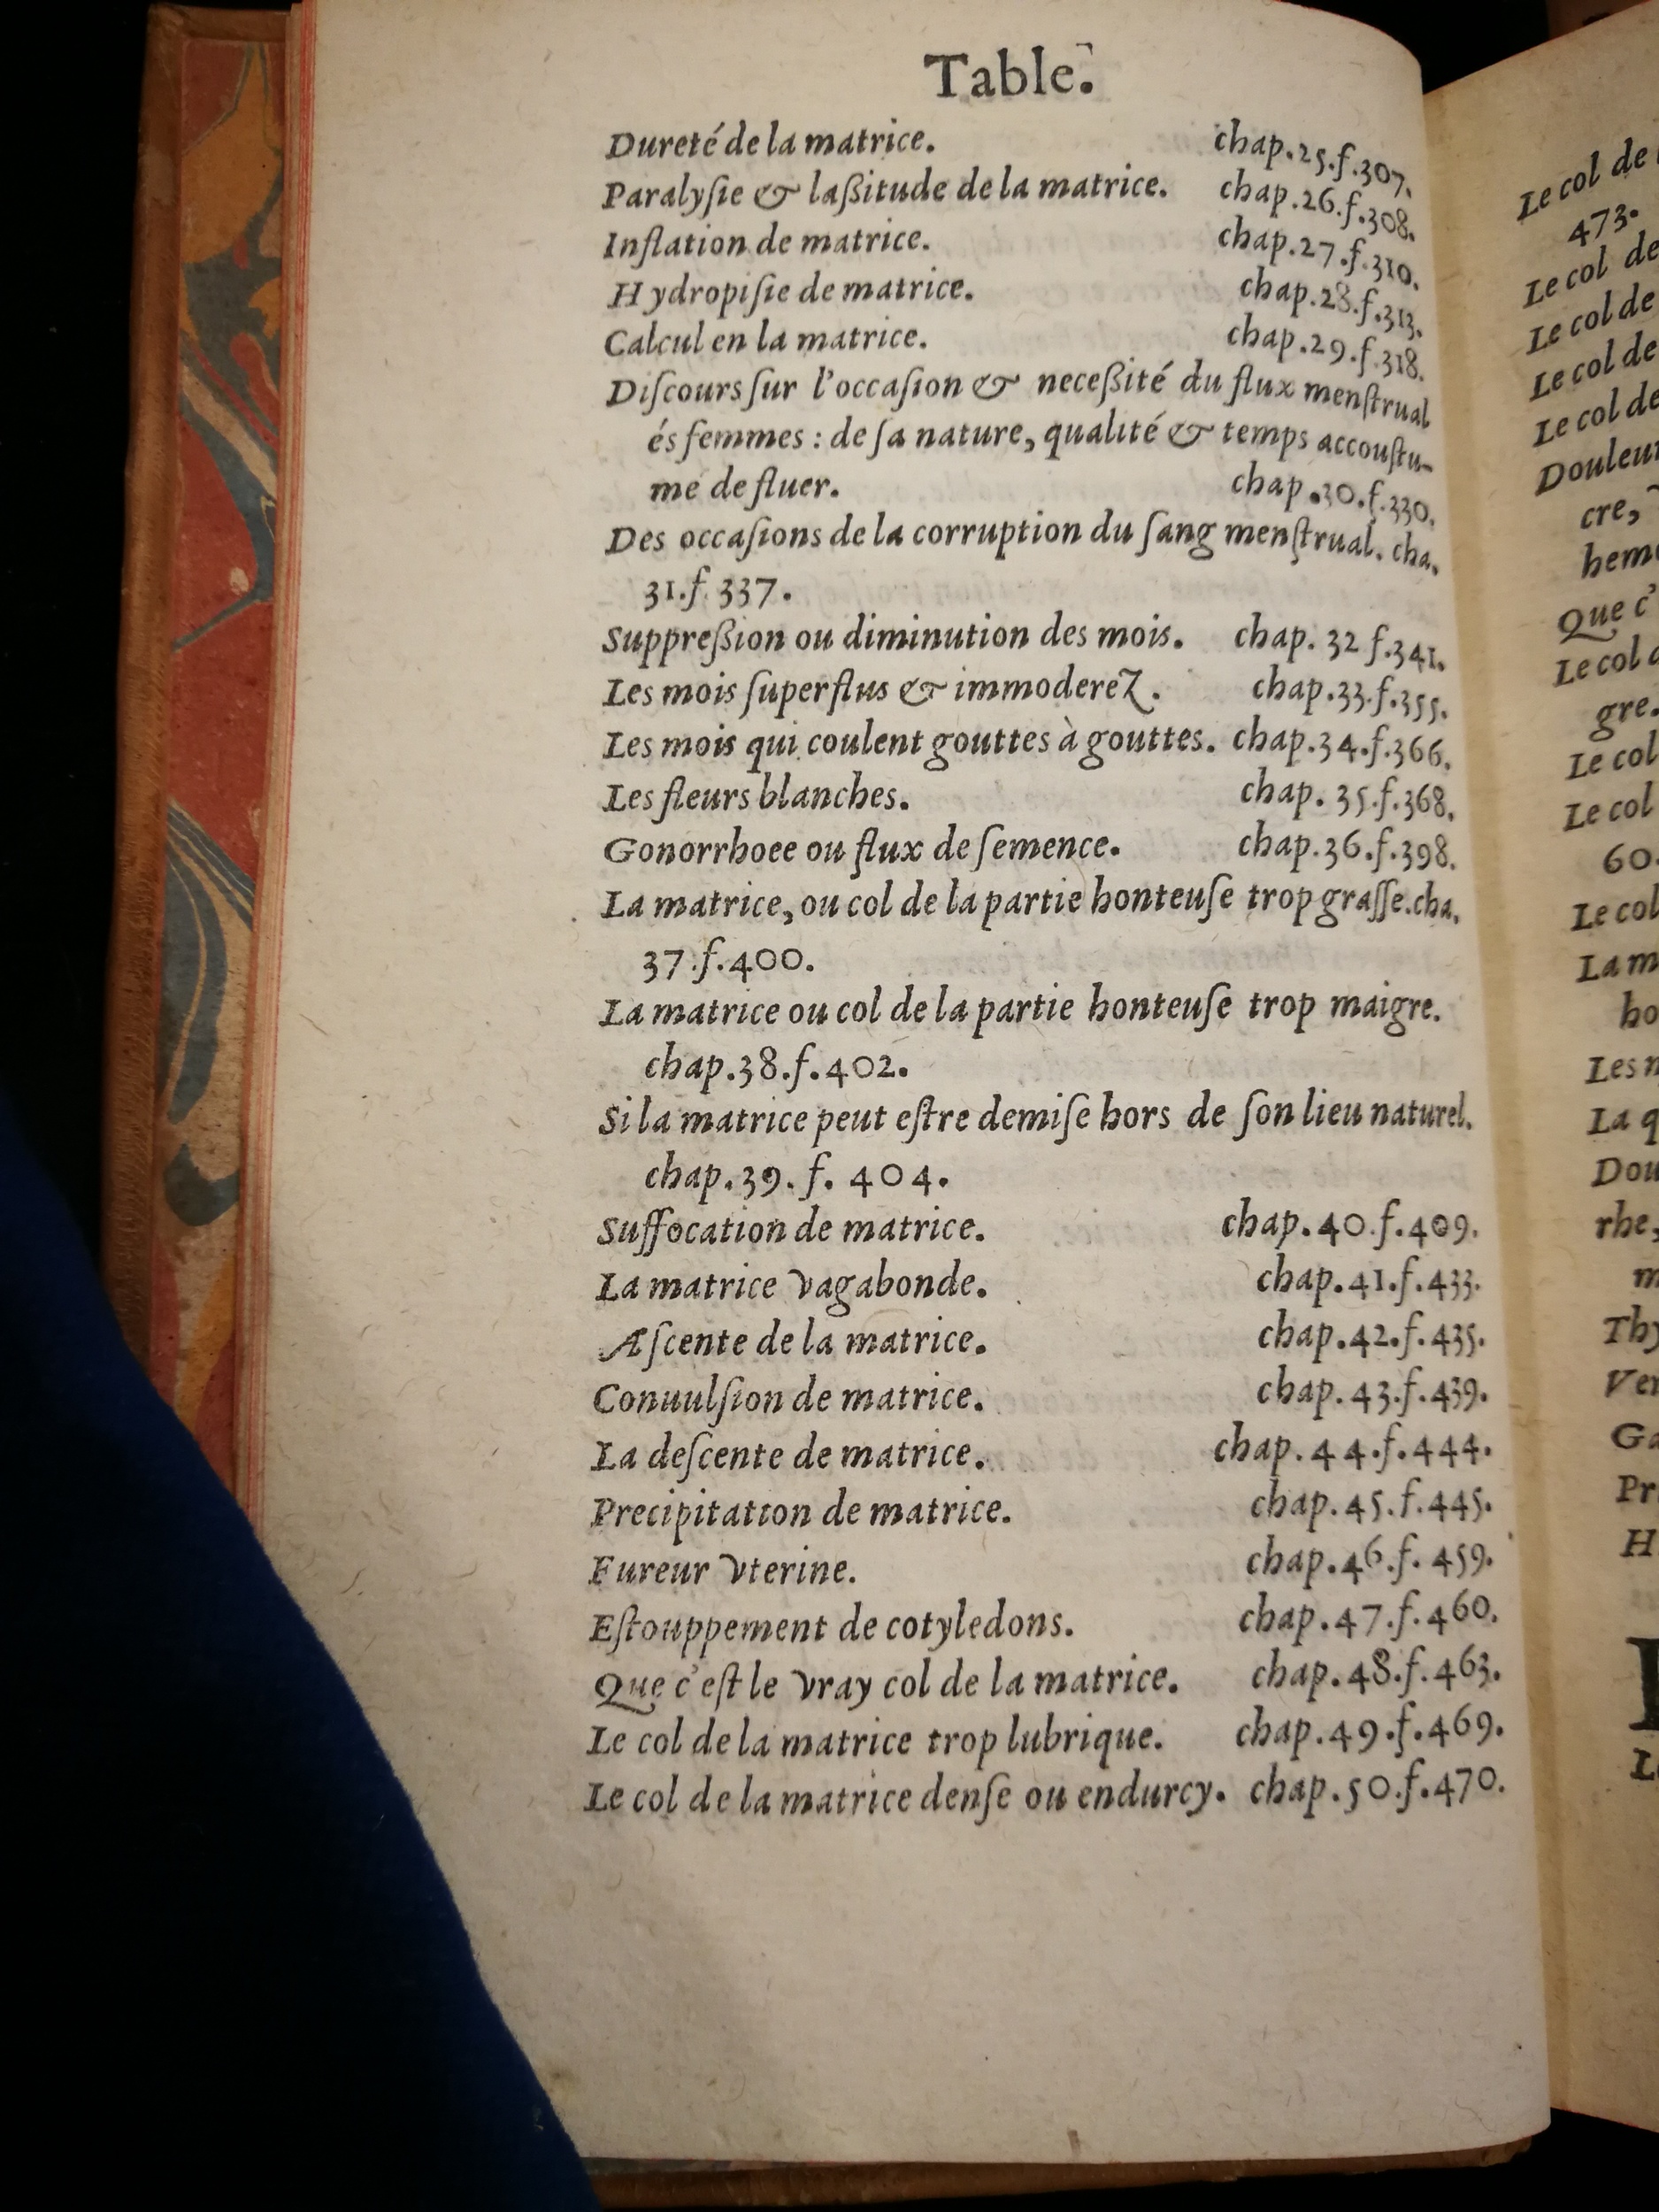 Table.
Dureté de la matrice. chap.25.f.307.
Paralyſie & laßitude de la matrice. chap.26.f.308.
Inflation de matrice. chap.27.f.310.
Hydropiſie de matrice. chap.28.f.313.
Calcul en la matrice. chap.29.f.318.
Diſcours ſur l'occaſion & neceßité du flux menſtrual
és femmes : de ſa nature, qualité & temps accouſtu-
mé de fluer. chap.30.f.330.
Des occaſions de la corruption du ſang menſtrual. cha.
31.f.337.
Suppreßion ou diminution des mois. chap. 32 f.341.
Les mois ſuperflus & immoderez. chap.33.f.355.
Les mois qui coulent gouttes à gouttes. chap.34.f.366.
Les fleurs blanches. chap. 35.f.368.
Gonorrhoee ou flux de ſemence. chap.36.f.398.
La matrice, ou col de la partie honteuſe trop graſſe.cha.
37.f.400.
La matrice ou col de la partie honteuſe trop maigre.
chap.38.f.402.
Si la matrice peut eſtre demiſe hors de ſon lieu naturel.
chap.39. f. 404.
Suffocation de matrice. chap.40.f.409.
La matrice vagabonde. chap.41.f.433.
Aſcente de la matrice. chap.42.f.435.
Conuulſion de matrice. chap.43.f.439.
La deſcente de matrice. chap.44.f.444.
Precipitation de matrice. chap.45.f.445.
Fureur vterine. chap.46.f. 459.
Eſtouppement de cotyledons. chap.47.f.460.
Que c'eſt le vray col de la matrice. chap.48.f.463.
Le col de la matrice trop lubrique. chap.49.f.469.
Le col de la matrice denſe ou endurcy. chap.50.f.470.
Le col de
473.
Le col de
Le col de
Le col de
Le col de
Douleur
cre,
hem
Que c'
Le col
gre.
Le col
Le col
60.
Le col
La m
ho
Les
La q
Dou
rhe,
m
Thy
Ver
Ga
Pr
H